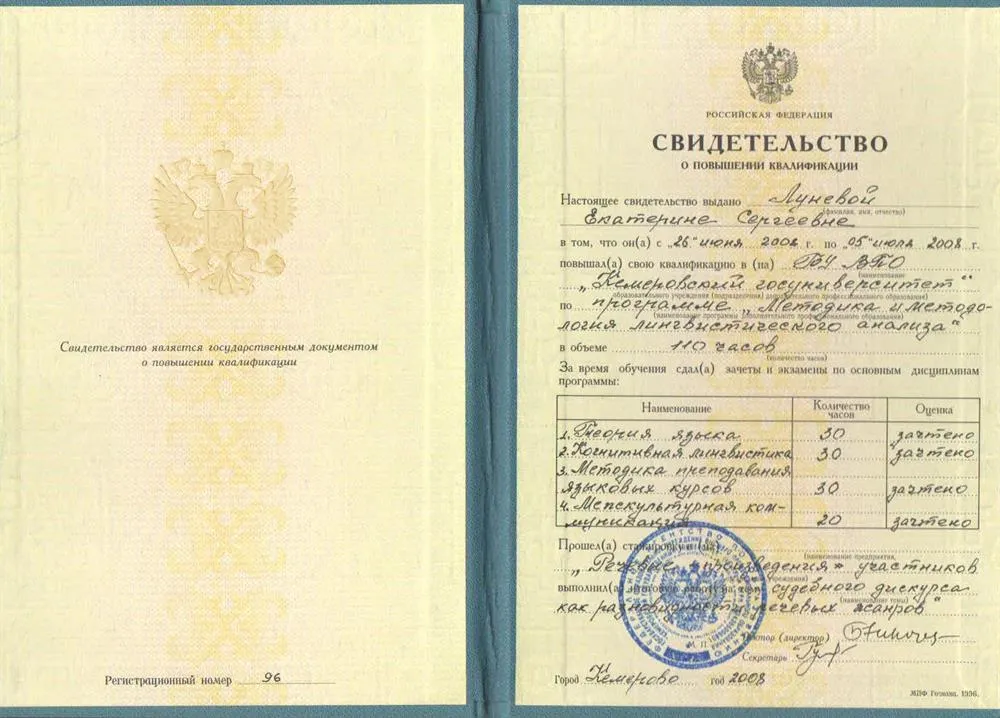 Свидетельство является государственным документом
о повышении квалификации
Регистрационный номер 96
РОССИЙСКАЯ ФЕДЕРАЦИЯ
СВИДЕТЕЛЬСТВО
О ПОВЫШЕНИИ КВАЛИФИКАЦИИ
Настоящее свидетельство выдано Луневой
(фамилия, имя, отчество)
Екатерине Сергеевне
в том, что он(а) с „26“ июня 2008 г. по „05“ июля 2008 г.
повышал(а) свою квалификацию в (на) ГУ ВПО
(наименование
„Кемеровский госуниверситет“
образовательного учреждения (подразделения) дополнительного профессионального образования)
по программе „Методика и методо-
(наименование программы дополнительного профессионального образования)
логия лингвистического анализа“
в объеме 110 часов
(количество часов)
За время обучения сдал(а) зачеты и экзамены по основным дисциплинам
программы:
Наименование Количество часов Оценка
1. Теория языка 30 зачтено
2. Когнитивная лингвистика 30 зачтено
3. Методика преподавания
языковых курсов 30 зачтено
4. Межкультурная ком-
муникация 20 зачтено
Прошел(а) стажировку в (на)
(наименование предприятия,
„Речевые произведения участников
учреждения)
выполнил(а) итоговую работу на тему судебного дискурса
(наименование темы)
как разновидности речевых жанров“
М. П.
Ректор (директор)
Секретарь
Город Кемерово год 2008
МПФ Гознака. 1996.